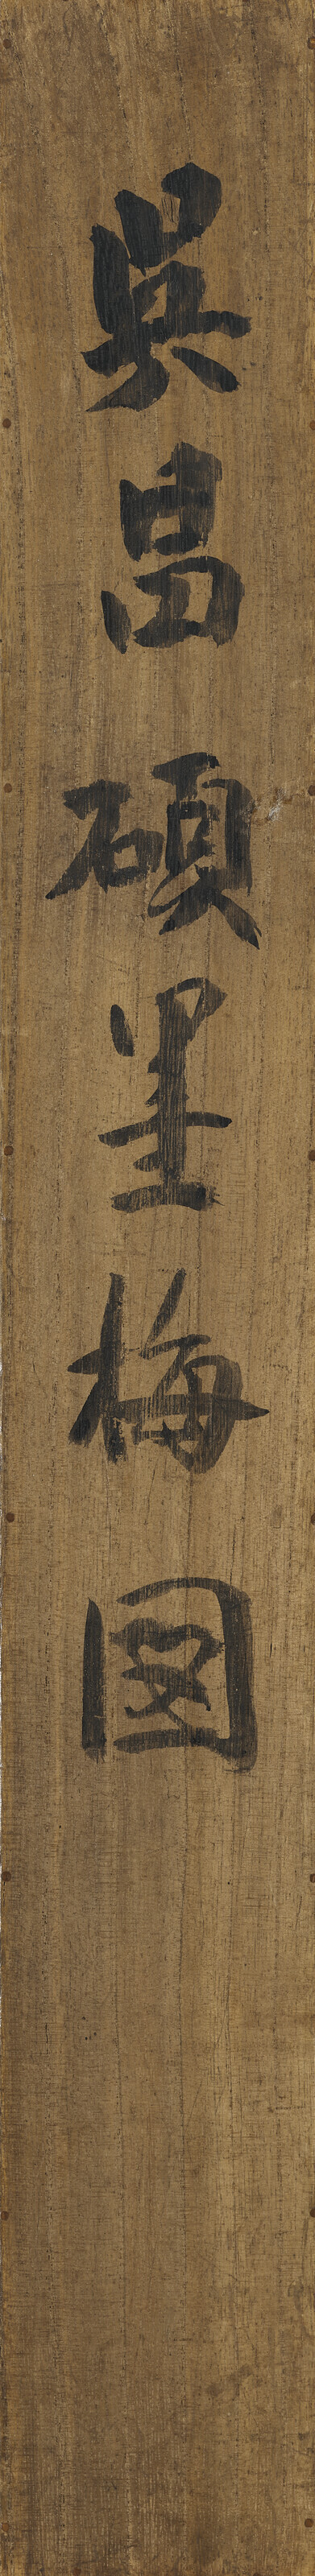 吳昌碩墨梅図